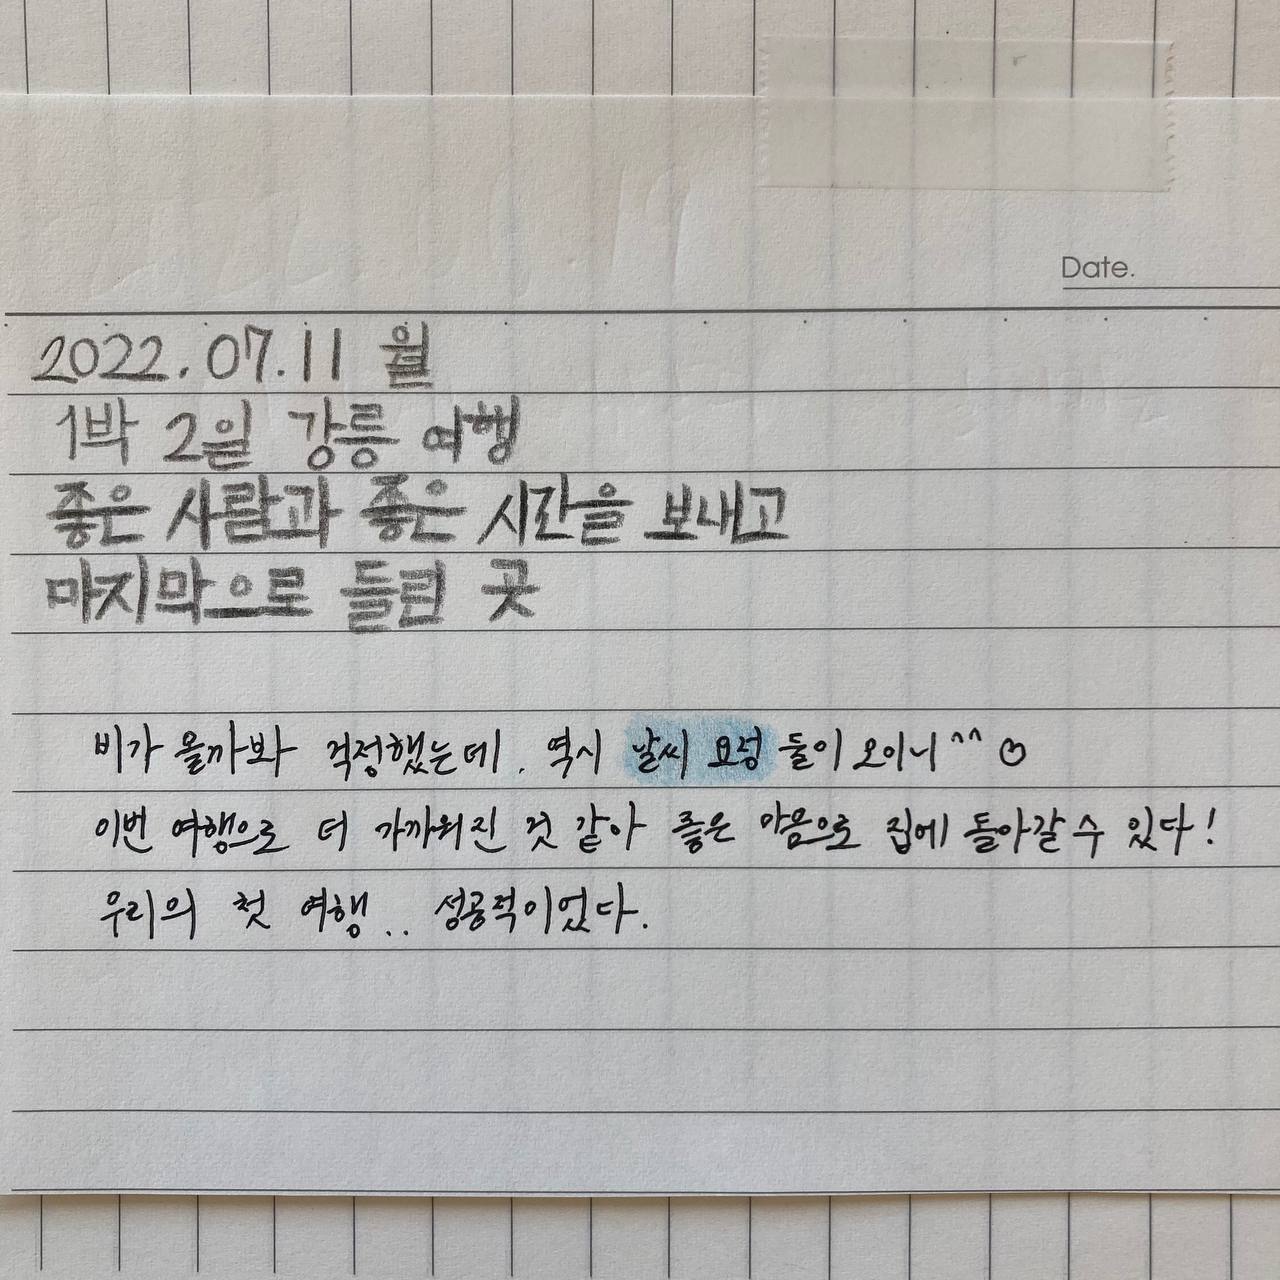 Date.
2022.07.11 월
1박 2일 강릉 여행
좋은 사람과 좋은 시간을 보내고
마지막으로 들린 곳
비가 올까봐 걱정했는데. 역시 날씨 요정 둘이 오이니^^
이번 여행으로 더 가까워진 것 같아 좋은 마음으로 집에 돌아갈 수 있다!
우리의 첫 여행.. 성공적이었다.